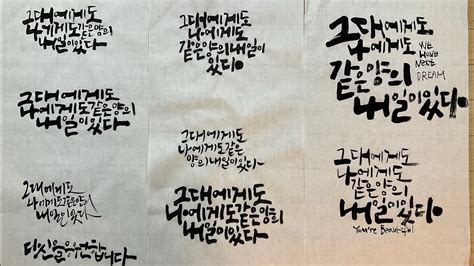 그대에게도
나에게도같은양의
내일이있다
그대에게도
나에게도같은양의
내일이있다
그대에게도
나에게도같은양의
내일이있다
당신을응원합니다
그대에게도
나에게도
같은양의내일이
있다
그대에게도
나에게도같은
양의내일이있다
그대에게도
나에게도같은양의
내일이있다
그대에게도
나에게도
같은양의
내일이있다
WE
HAVE
NEXT
DREAM
그대에게도
나에게도
같은양의
내일이있다
You're Beautiful